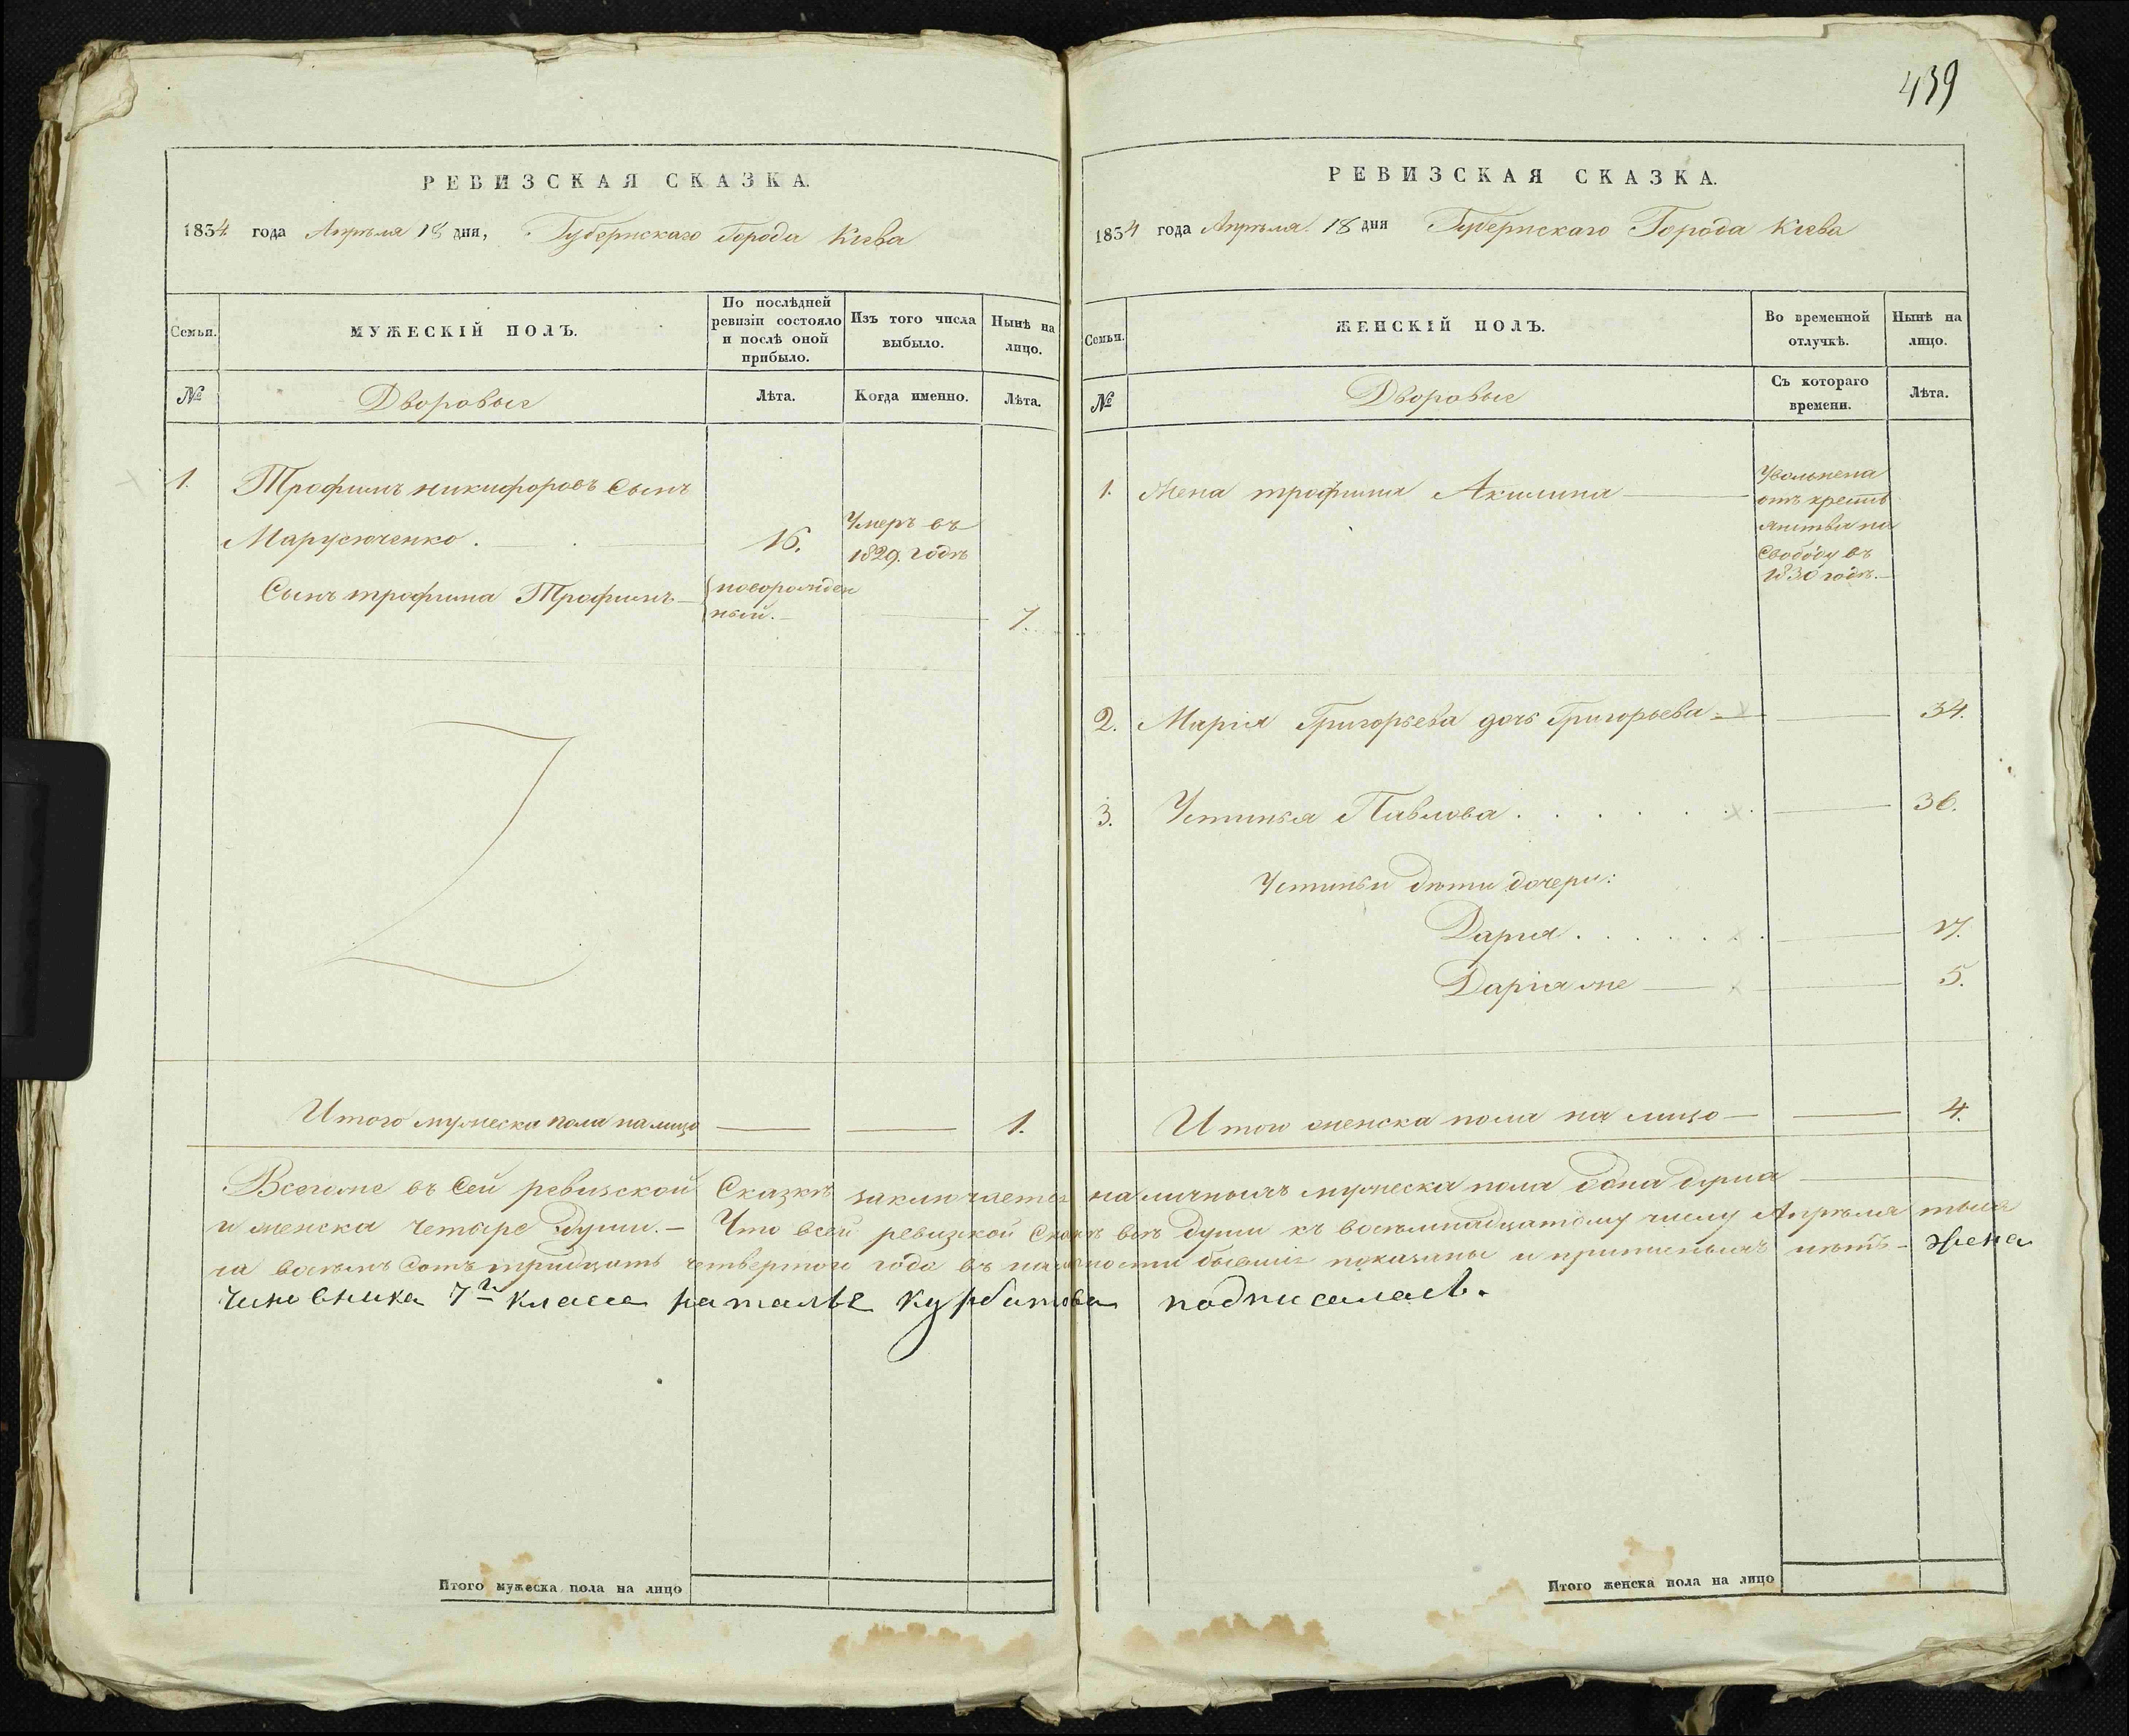 РЕВИЗСКАЯ СКАЗКА.
1834. года Апрѣля 18 дня, Губернскаго города Кіева
Семьи.
МУЖЕСКІЙ ПОЛЪ.
По послѣдней
ревизіи состояло
и послѣ оной
прибыло.
Изъ того числа
выбыло.
Нынѣ на
лицо.
№
Дворовые
Лѣта.
Когда именно.
Лѣта.
1. Трофимъ никифоровъ Сынъ
Марусюченко. 16. Умеръ въ
1829. годѣ
Сынъ трофима Трофимъ новорожден
ный. 7.
Итого мужеска пола на лицо 1.
Итого мужеска пола на лицо
439
РЕВИЗСКАЯ СКАЗКА.
1834 года Апрѣля 18 дня Губернскаго Города Кіева
Семьи.
ЖЕНСКІЙ ПОЛЪ.
Во временной
отлучкѣ.
Нынѣ на
лицо.
№
Дворовые
Съ котораго
времени.
Лѣта.
1. Жена трофима Акилина
Увольнена
отъ крестъ
янства на
Свободу въ
1830 годѣ.
2. Марія Григорьева дочь Григорьева 34.
3. Устинья Павлова 36.
Устиньи дѣти дочери:
Дарія
Дарія же 5.
Итого женска пола на лицо 4.
Итого женска пола на лицо
Всегоже въ Сей ревизской Сказкѣ заключается наличныхъ мужеска пола одна душа
и женска четыре души. Что всей ревизской Сказкѣ всѣ души къ восемнадцатому числу Апрѣля тыся
ча восемь сотъ тридцать четвертого года въ наличности бывшіе показаны и нѣтъ жена
чиновника 7го класса наталье курбатова подписалась.